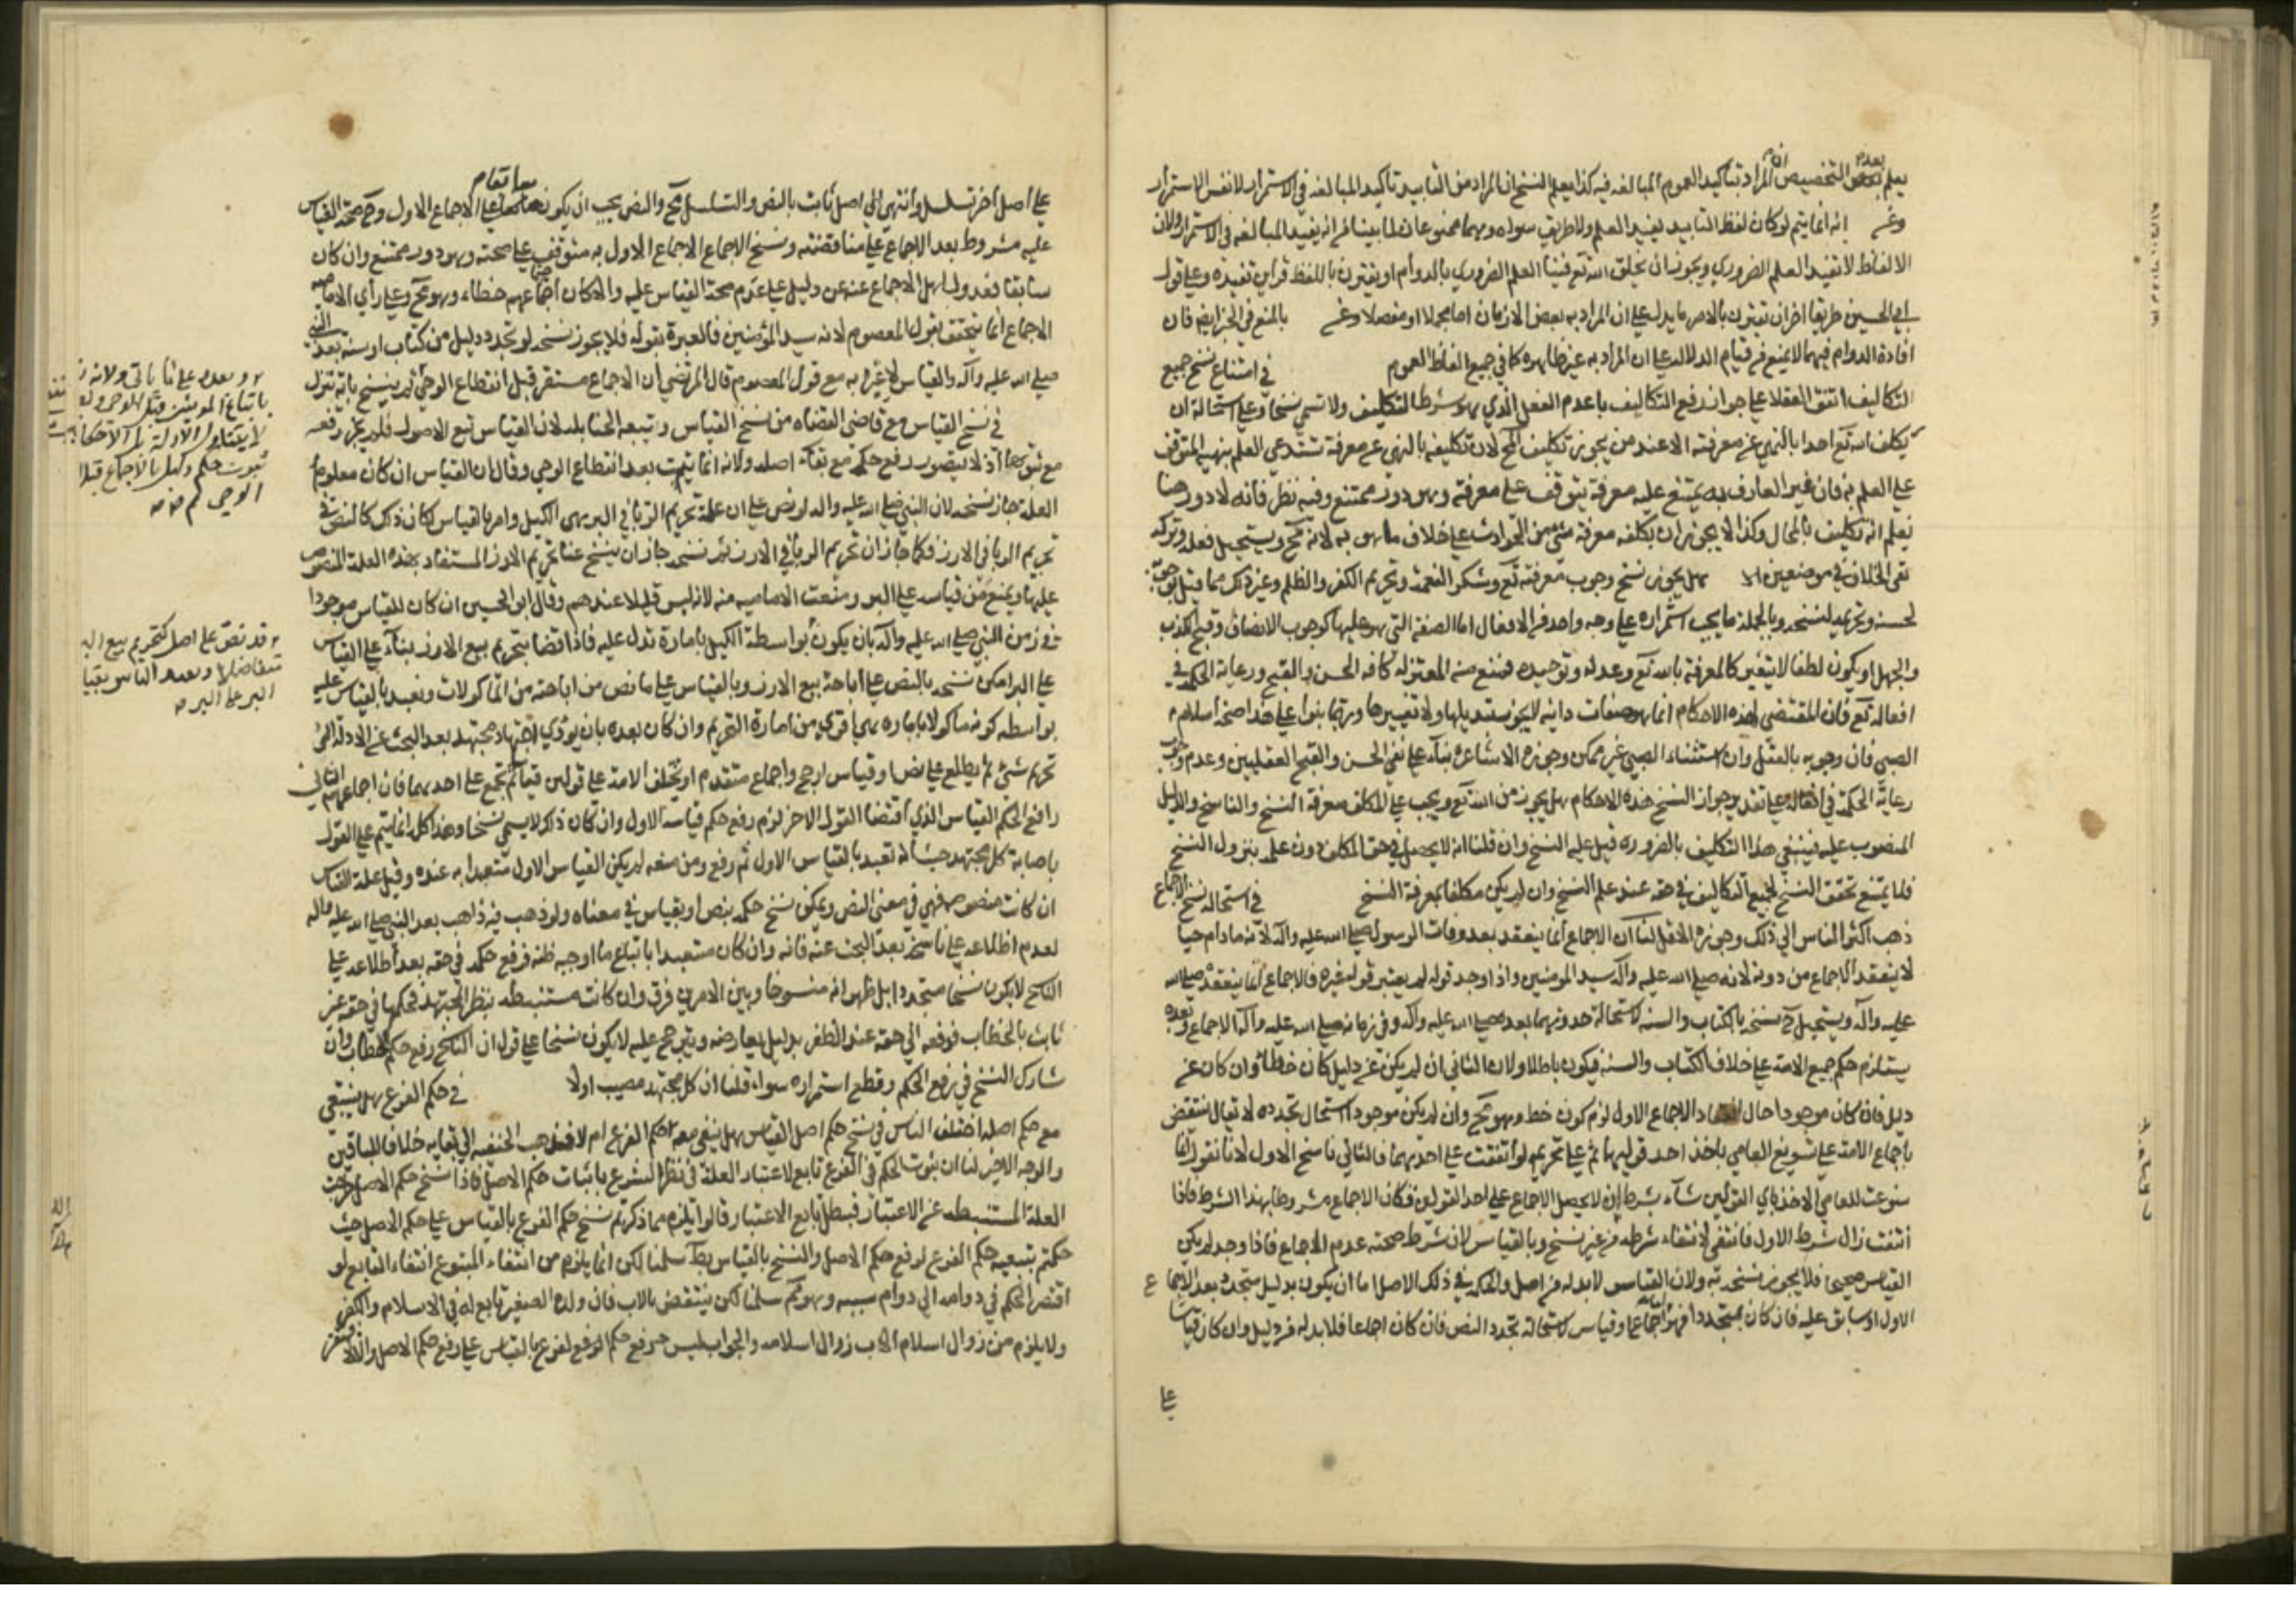 يعلم بعدم التخصيص ان المراد بتاكيد العموم المبالغه فيه كذا يعلم النسخ ان المراد من التابيد تاكيد المبالغه في الاستمرار لا نفس الاستمرار
انه انما يتم لو كان لفظ التابيد يفيد العلم ولا طريق سواه وهما ممنوعان لما بينا من انه يفيد المبالغه في الاستمرار ولان
الالفاظ لا تفيد العلم الضروري ويجوز ان يخلق الله تع فينا العلم الضروري بالدوام او يقترن باللفظ قراين تفيده وعلى قول
ابي الحسين طريقا اخر ان تقترن بالامر ما يدل على ان المراد به بعض الازمان اما مجملا او مفصلا بالمنع في الخبر ايضا فان
افادة الدوام فيهما لا يمنع من قيام الدلاله على ان المراد به غير ظاهره كما في جميع الفاظ العموم في امتناع نسخ جميع
التكاليف اتفق العقلا على جواز رفع التكاليف باعدم العقل الذي هو شرط التكليف ولا تسمى نسخا وعلى استحالة ان
يكلف الله تع احدا بالنهي عن معرفته الا عند من يجوز تكليف المح لان تكليفه بالنهي عن معرفة تستدعي العلم بنهيه المتوقف
على العلم به فان غير العارف به يمتنع عليه معرفة يتوقف على معرفة وهو دور ممتنع وفيه نظر فانه لا دور هنا
نعلم انه تكليف بالمحال وكذا لا يجوز ان يكلفه معرفة شئ من الحوادث على خلاف ما هو به لانه مح ويستحيل فعله وتركه
بقي الخلاف في موضعين هل يجوز نسخ وجوب معرفته تع وشكر النعمة وتحريم الكفر والظلم وغير ذلك مما قيل بوجوبه
لحسنه وتحريمه لنسخه وبالجملة ما يجب استمراره على وجه واحد من الافعال اما الصفة التي هو عليها كوجوب الانصاف وقبح الكذب
والجهل او يكون لطفا لا يتغير كالمعرفة بالله تع وعدله وتوحيده فمنع منه المعتزله كافه الحسن والقبح ورعاية الحكمه في
افعاله تع فان المقتضى لهذه الاحكام انما هو صفات ذاتيه لا يجوز تبديلها ولا تغييرها وربما بنوا على هذا صحة اسلام
الصبي فان وجوبه بالعقل وان استثناء الصبي غير ممكن وجوزه الاشاعره بناء على نفي الحسن والقبح العقليين وعدم وجوب
رعاية الحكمة في افعاله وعلى تقدير جواز النسخ هذه الاحكام هل يجوز من الله تع ويجب على المكلف معرفة النسخ والناسخ والدليل
المنصوب عليه فينبغي هذا التكليف بالضروره قيل عليه النسخ وان قلنا انه لا يحصل في حق المكلف دون علمه بنزول النسخ
فلا يمتنع تحقق النسخ لجميع التكاليف في حقه عند علم النسخ وان لم يكن مكلفا بمعرفة النسخ في استحالة نسخ الاجماع
ذهب اكثر الناس الى ذلك وجوزه الاقل لنا ان الاجماع انما ينعقد بعد وفات الرسول صلى الله عليه وآله لانه ما دام حيا
لا ينعقد الاجماع من دونه لانه صلى الله عليه وآله سيد المومنين واذا وجد قوله لم يعتبر قول غيره فالاجماع انما ينعقد بعده صلى الله
عليه وآله ويستحيل ح نسخه بالكتاب والسنه لاستحالة حدوثهما بعده صلى الله عليه وآله وفي زمانه صلى الله عليه وآله الاجماع وبعده
يستلزم حكم جميع الامة على خلاف الكتاب والسنة فيكون باطلا ولان الثاني ان لم يكن عن دليل كان خطأ وان كان عن
دليل فان كان موجودا حال انعقاد الاجماع الاول لزم كون خطا وهو مح وان لم يكن موجودا استحال تجدده لا تقال ينتقض
باجماع الامة على تسويغ العامي ياخذ احد قوليها ثم على تحريمه لو اتفقت على احدهما فالثاني ناسخ الاول لانا نقول انما
سوغت للعامي الاخذ باي القولين شاء بشرط ان لا يحصل الاجماع على احد القولين فكان الاجماع مشروطا بهذا الشرط فاذا
انتفت زال شرط الاول فانتفى لانتفاء شرطه من غير نسخ وبالقياس لان شرط صحته عدم الاجماع فاذا وجد لم يكن
القياس صحيحا فلا يجوز نسخه به ولان القياس لا بد له من اصل والحكم في ذلك الاصل اما ان يكون بدليل متجدد بعد الاجماع
الاول او سابق عليه فان كان متجددا فهو اما اجماع او قياس لاستحالة تجدد النص فان كان اجماعا فلا بد له من دليل وان كان قياسا
على
على اصل اخر تسلسل وانتهى الى اصل ثابت بالنص والتسلسل مح والنص يجب ان يكون سابقا على الاجماع الاول وح صحة القياس
عليه مشروط بعد الاجماع على مناقضته ونسخ الاجماع الاول به متوقف على صحته وهو دور ممتنع وان كان
سابقا فعدول اهل الاجماع عنه عن دليل على عدم صحة القياس عليه والا كان اجماعهم خطاء وهو مح وعلى رأي الاماميه
الاجماع انما يتحقق بقول المعصوم لانه سيد المؤمنين فالعبرة بقوله فلا يجوز نسخه لو تجدد دليل من كتاب او سنه بعد النبي
صلى الله عليه وآله والقياس لا عبرة به مع قول المعصوم قال المرتضى ان الاجماع مستقر قبل انقطاع الوحي ثم ينسخ باية تنزل
في نسخ القياس منع قاضي القضاة من نسخ القياس وتبعه الحنابله لان القياس تبع الاصول فلم يجز رفعه
مع ثبوتها اذ لا يتصور رفع حكمه مع بقاء اصله ولانه انما يثبت بعد انقطاع الوحي وقال ان القياس ان كان معلوم
العلة جاز نسخه لان النبي صلى الله عليه وآله لو نص على ان علة تحريم الربا في البر هي الكيل وامر بالقياس كان ذلك كالنص في
تحريم الربا في الارز فكما جاز ان تحريم الربا في الارز ثم نسخه جاز ان ينسخ عنا تحريم الارز المستفاد بهذه العلة المنصوص
عليها ويمنع من قياسه على البر ومنعت الاماميه منه لانه ليس قبلا عندهم وقال ابو الحسين ان كان القياس موجودا
في زمن النبي صلى الله عليه وآله بان يكون بواسطة الكيل بامارة تدل عليه فاذا قضا بتحريم بيع الارز بناء على القياس
على البر امكن نسخه بالنص على اباحة بيع الارز وبالقياس على ما نص من اباحته من الماكولات وتعبد بالقياس عليه
بواسطه كونه ماكولا بامارة هي اقوى من امارة التحريم وان كان بعده بان يودي اجتهاد مجتهد بعد البحث عن الادلة الى
تحريم شئ ثم يطلع على نص او قياس ارجح واجماع متقدم او يختلف الامة على قولين قياسا ثم تجمع على احدهما فان اجماعهم الثاني
رافع لحكم القياس الذي اقتضا القول الاخر لزم رفع حكم قياسه الاول وان كان ذلك لا يسمى نسخا وهذا كله انما يتم على القول
باصابة كل مجتهد حيث انه تعبد بالقياس الاول ثم رفع ومن منعه لم يكن القياس الاول متعبدا به عنده وقيل علة القياس
ان كانت منصوصه فهي في معنى النص ويمكن نسخ حكمه بنص او بقياس في معناه ولو ذهب فيه ذاهب بعد النبي صلى الله عليه واله
لعدم اطلاعه على ناسخه بعد البحث عنه فانه وان كان متعبدا باتباع ما اوجبه ظنه فرفع حكمه في حقه بعد اطلاعه على
النسخ لا يكون نسخا متجددا بل ظهر انه منسوخا وبين الامرين فرق وان كانت مستنبطه بنظر المجتهد فحكمها في حقه غير
ثابت بالخطاب فرفعه الى حقه عند الظفر بدليل يعارضه ويترجح عليه لا يكون نسخا على قول ان النسخ رفع حكم الخطاب وان
شارك النسخ في رفع الحكم وقطع استمراره سواء قلنا ان كل مجتهد مصيب اولا في حكم الفرع هل يبقى
مع حكم اصله اختلف الناس في نسخ حكم اصل القياس هل يبقى معه حكم الفرع ام لا فذهب الحنفيه الى بقايه خلافا للباقين
والوجه الاخير لنا ان ثبوت الحكم في الفرع تابع لاعتبار العلة في نظر الشرع باثبات حكم الاصل فاذا نسخ حكم الاصل خرجت
العلة المستنبطه عن الاعتبار فبطل تابع الاعتبار قالوا يلزم مما ذكرتم نسخ حكم الفرع بالقياس على حكم الاصل حيث
حكمتم بتبعيه حكم الفرع لرفع حكم الاصل والنسخ بالقياس بط سلمنا لكن انما يلزم من انتفاء المتبوع انتفاء التابع لو
افتقر الحكم في دوامه الى دوام سببه وهو مم سلمنا لكن ينتقض بالاب فان ولده الصغير تابع له في الاسلام والكفر
ولا يلزم من زوال اسلام الاب زوال اسلامه والجواب ليس رفع حكم الفرع بالقياس على رفع حكم الاصل والا لافتقر
باتباع المومنين
ثبوت حكم دليل بالاجماع قبل
الوحي
قد نص على اصل كتحريم بيع البر
متفاضلا وتعبد الناس بقياس
البر على البر